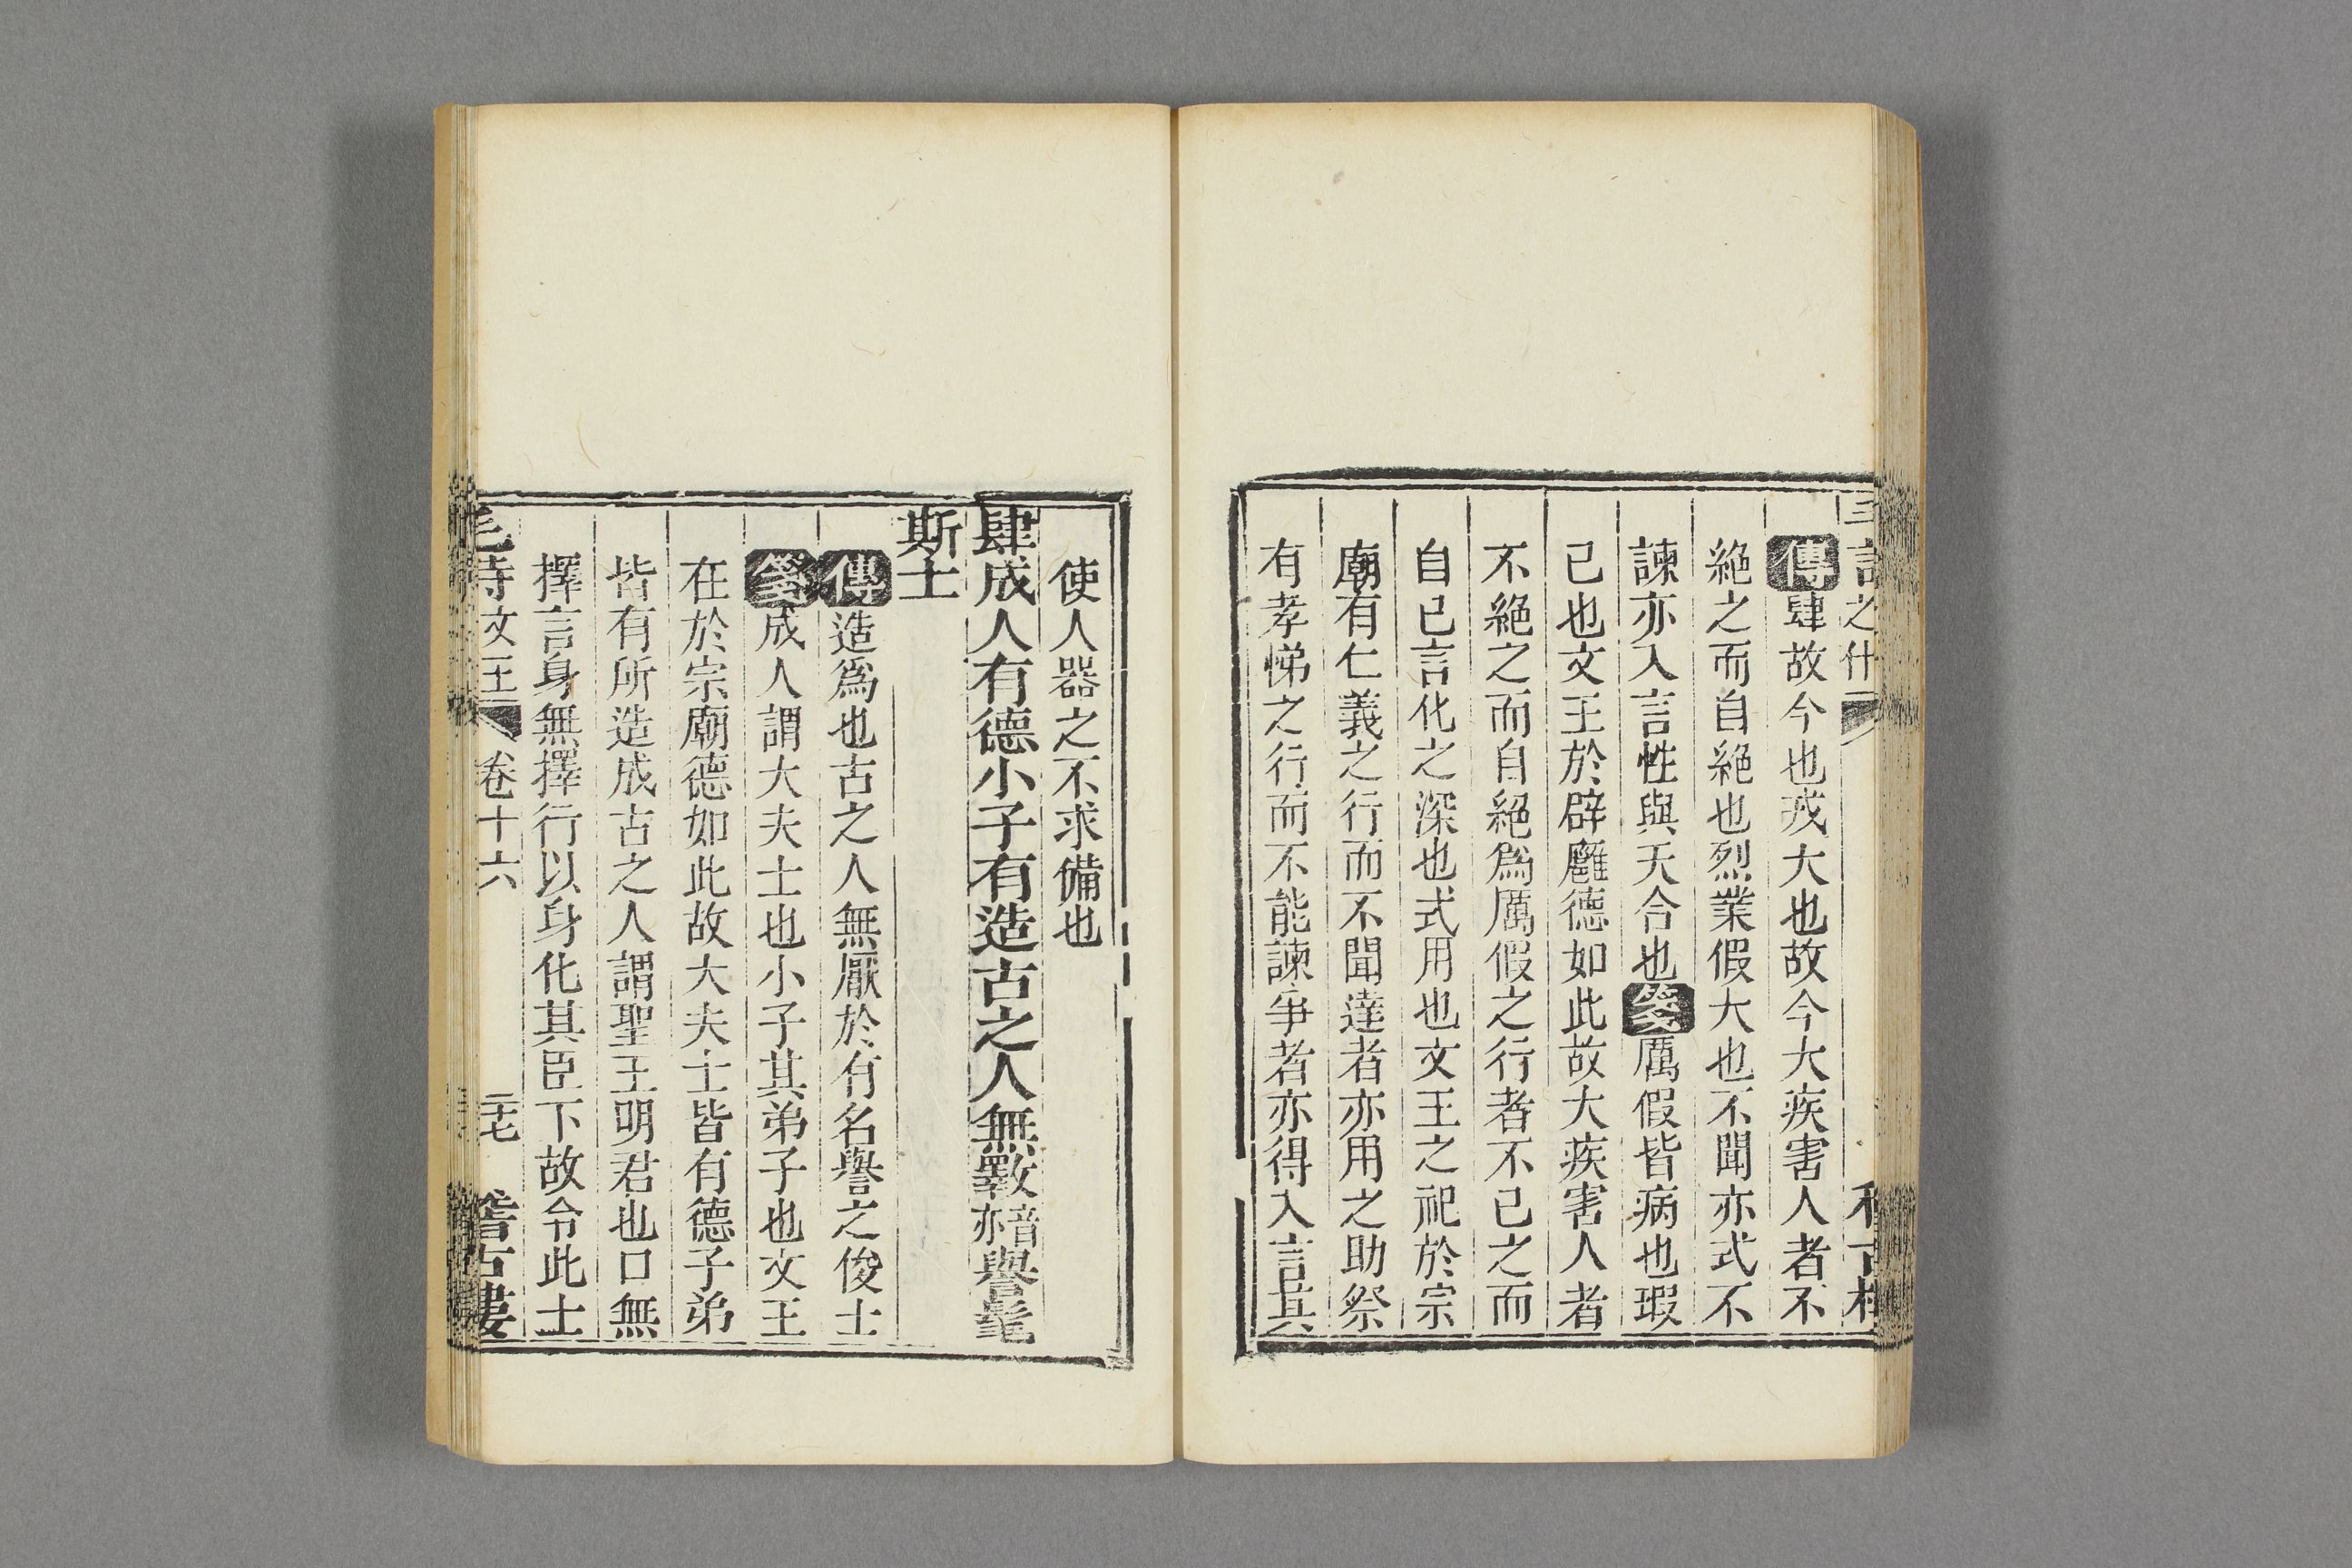 傳肆故今也戎大也故今大疾害人者不
絕之而自絕也烈業假大也不聞亦式不
諫亦入言性與天合也箋厲假皆病也瑕
已也文王於辟廱德如此故大疾害人者
不絕之而自絕爲厲假之行者不已之而
自已言化之深也式用也文王之祀於宗
廟有仁義之行而不聞達者亦用之助祭
有孝悌之行而不能諫爭者亦得入言其
使人器之不求備也
肆成人有德小子有造古之人無斁亦音譽髦
斯士
傳造爲也古之人無厭於有名譽之俊士
箋成人謂大夫士也小子其弟子也文王
在於宗廟德如此故大夫士皆有德子弟
皆有所造成古之人謂聖王明君也口無
擇言身無擇行以身化其臣下故令此士
毛詩文王 卷十六 二十七 稽古樓